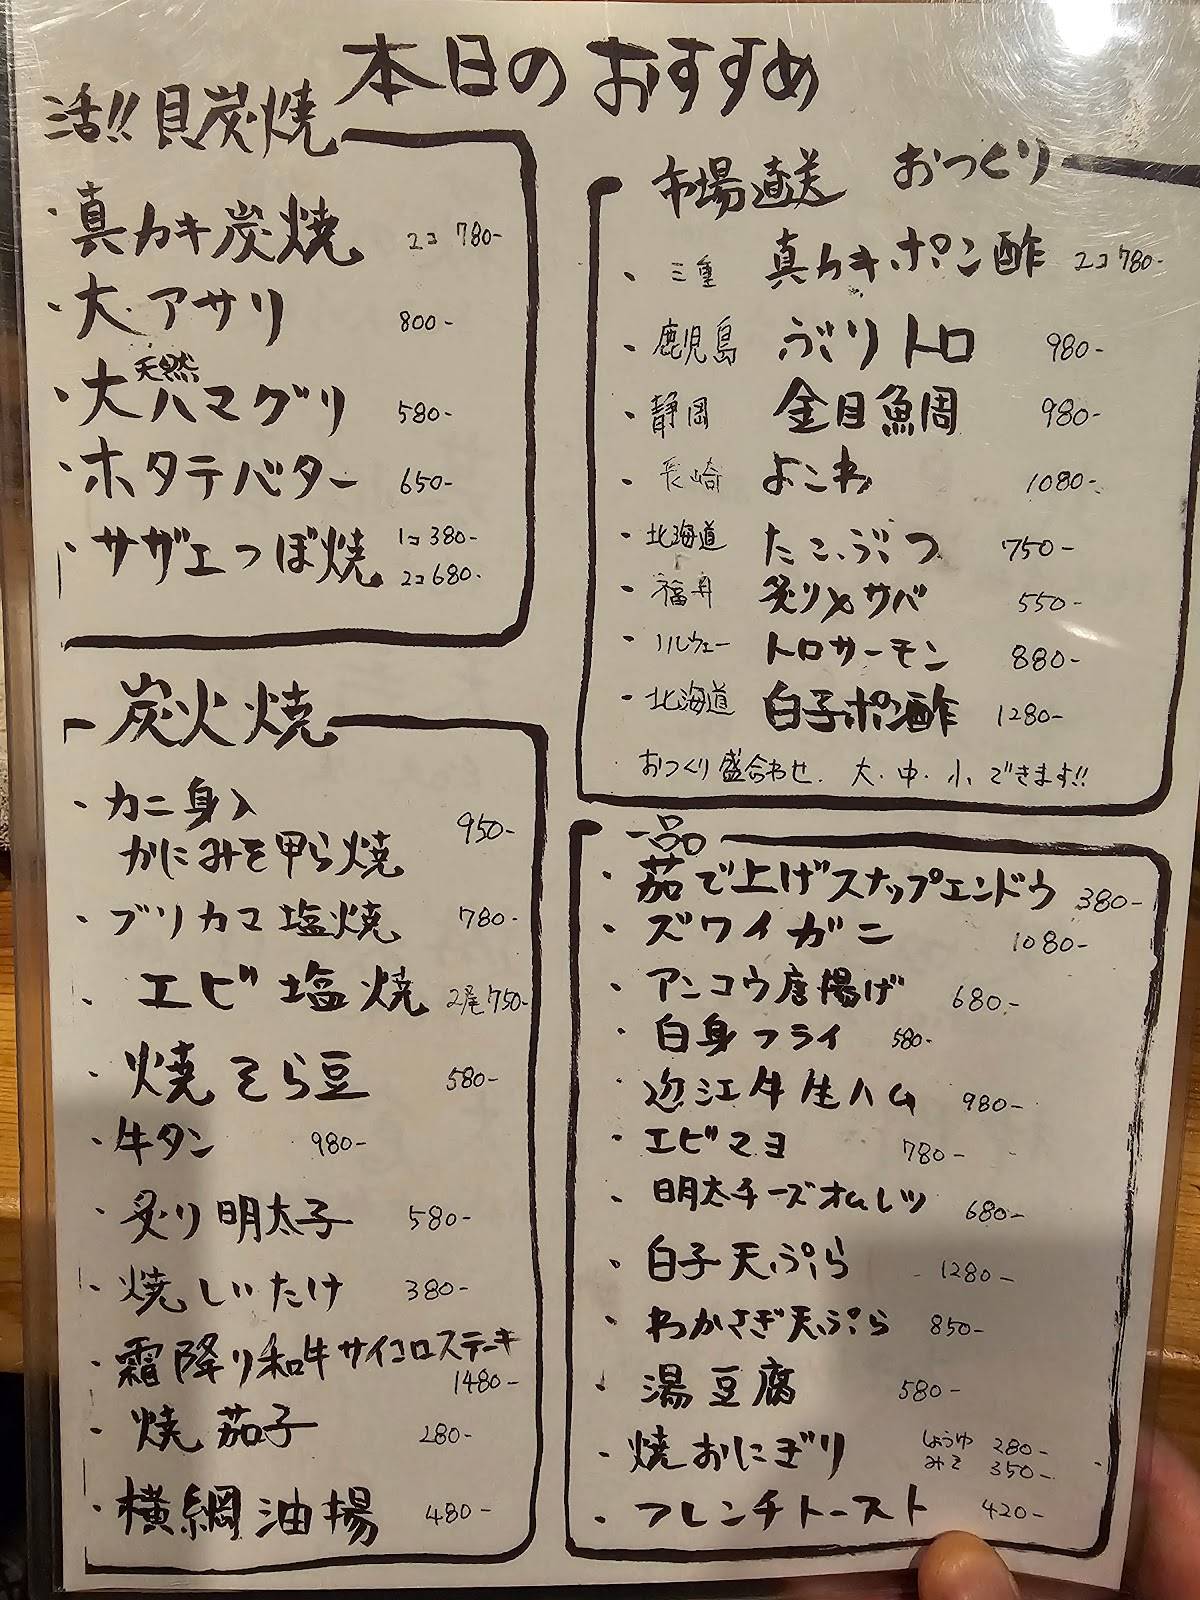 本日のおすすめ
活!! 貝炭焼
・真カキ炭焼 2コ 780-
・大アサリ 800-
・大天然ハマグリ 580-
・ホタテバター 650-
・サザエつぼ焼 1コ 380-
2コ 680-
炭火焼
・カニ身入
かにみそ甲ら焼 950-
・ブリカマ塩焼 780-
・エビ塩焼 2尾 750-
・焼そら豆 580-
・牛タン 980-
・炙り明太子 580-
・焼しいたけ 380-
・霜降り和牛サイコロステーキ
1480-
・焼茄子 280-
・横綱油揚 480-
市場直送 おつくり
・三重 真カキポン酢 2コ 780-
・鹿児島 ぶりトロ 980-
・静岡 金目鯛 980-
・長崎 よこわ 1080-
・北海道 たこぶつ 750-
・福井 炙り〆サバ 550-
・ノルウェー トロサーモン 880-
・北海道 白子ポン酢 1280-
おつくり盛合わせ 大・中・小 できます!!
一品
・茹で上げスナップエンドウ 380-
・ズワイガニ 1080-
・アンコウ唐揚げ 680-
・白身フライ 580-
・近江牛生ハム 980-
・エビマヨ 780-
・明太チーズオムレツ 680-
・白子天ぷら 1280-
・わかさぎ天ぷら 850-
・湯豆腐 580-
・焼おにぎり しょうゆ 280-
みそ 350-
・フレンチトースト 420-